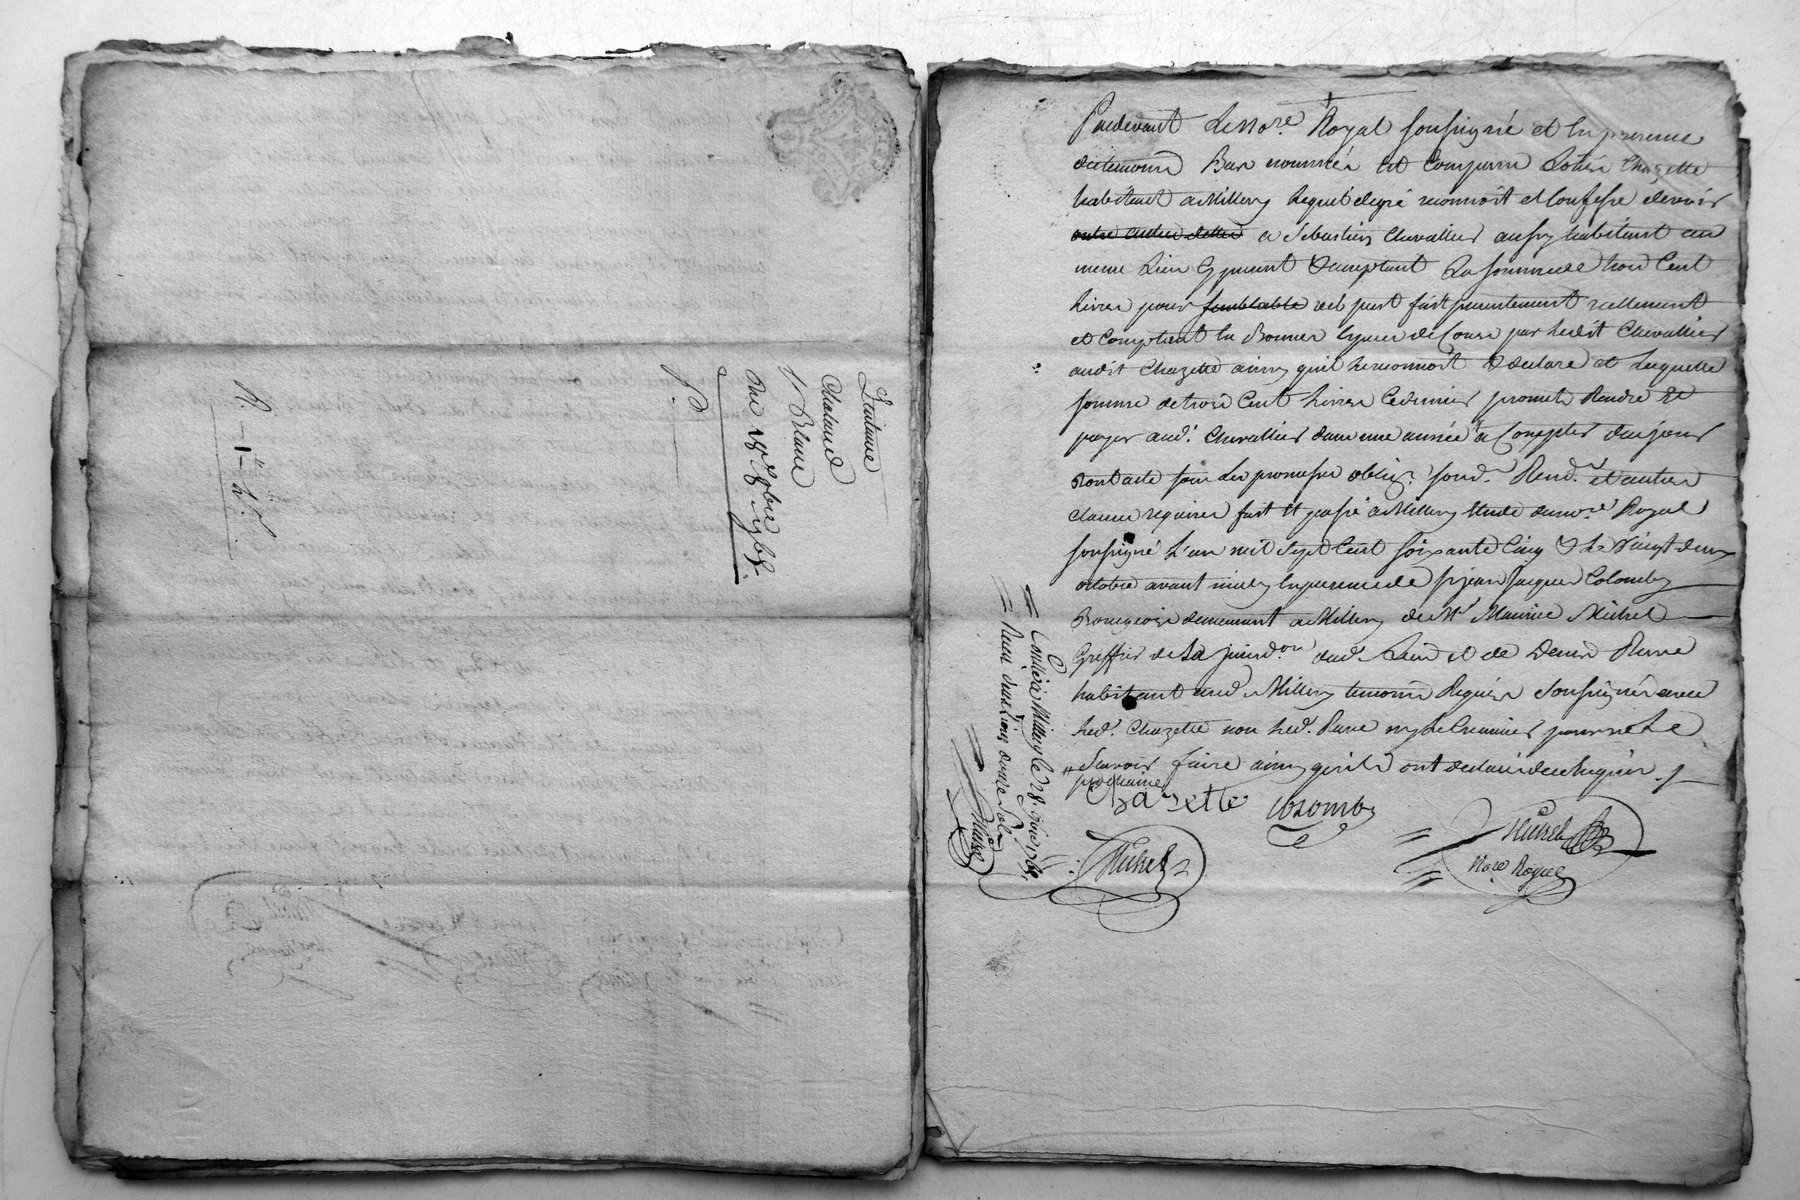 Quittance
Chataud
Blanc
Du 18e 9bre 1767
Pardevant le nore. Royal soussigné et en presence
des temoins Bas nommés est comparu Chazette
habitant a Millery lequel de gré reconnoit et confesse devoir
a Sebastien Chevallier aussy habitant au
meme Lieu cy present & acceptant La somme de trois Cent
livres pour semblable prest fait presentement reellement
et comptant en Bonnes especes de Cours par ledit Chevallier
audit Chazette ainsy quil le reconnoit & declare et laquelle
somme de trois Cent livres Ce dernier promet Rendre &
payer aud. Chevallier dans une année a Compter du jour
Dont acte sous les promesses oblig. soud. Renod. et autres
clauses requises fait et passé a Millery Etude du nore. Royal
soussigné L'an mil Sept Cent soixante Cinq & le Vingt deux
octobre avant midy en presence de sr jean Jacques Colomby
Bourgeois demeurant a Millery de Mr. Maurice Michel
Greffier de la jurisdon. dud. Lieu et de Denis
habitant aud. Millery temoins Requis & soussignés avec
led. Chazette non led. ny le Chevallier pour ne le
Scavoir faire ainsy quils ont declaré de ce Enquis
prochaine
Chazette Colomby
Michel
Michel
Nore Royal
Conllé a Millery le 28. 8bre 1765
Reçu deux Livres douze Sols
Michel